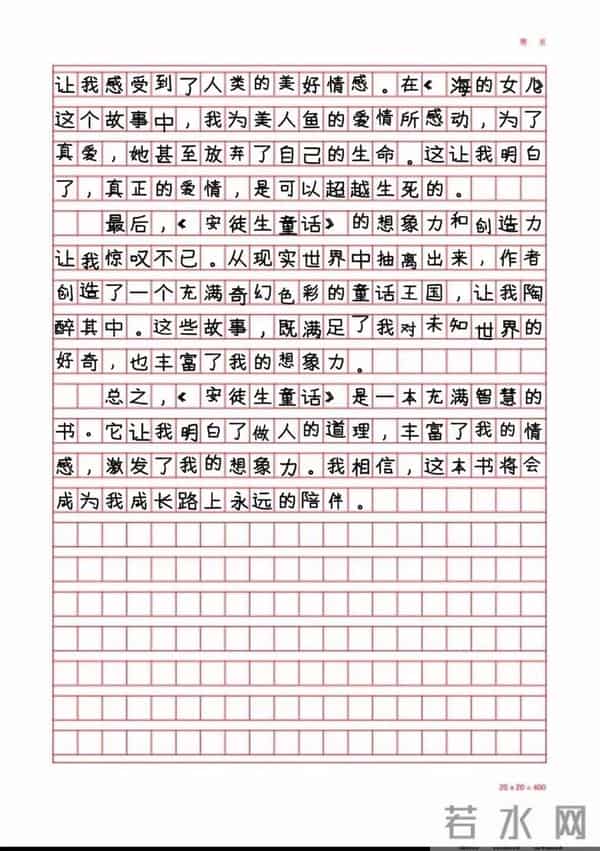 让我感受到了人类的美好情感。在《海的女儿》
这个故事中，我为美人鱼的爱情所感动，为了
真爱，她甚至放弃了自己的生命。这让我明白
了，真正的爱情，是可以超越生死的。
最后，《安徒生童话》的想象力和创造力
让我惊叹不已。从现实世界中抽离出来，作者
创造了一个充满奇幻色彩的童话王国，让我陶
醉其中。这些故事，既满足了我对未知世界的
好奇，也丰富了我的想象力。
总之，《安徒生童话》是一本充满智慧的
书。它让我明白了做人的道理，丰富了我的情
感，激发了我的想象力。我相信，这本书将会
成为我成长路上永远的陪伴。
20 x 20 = 400
若水网